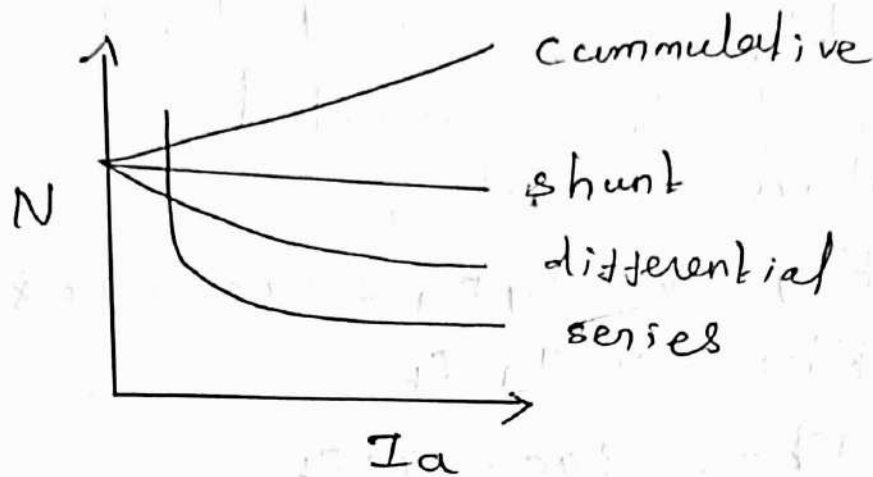 cummulative
N
shunt
differential
series
Ia